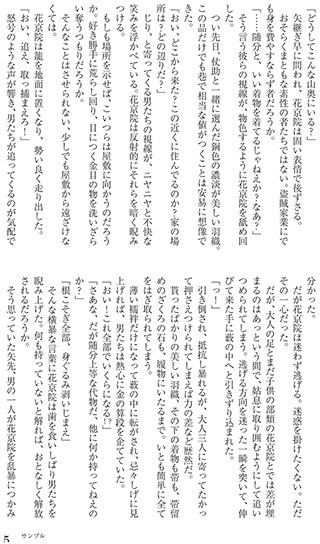 「どうしてこんな山奥にいる？」
　矢継ぎ早に問われ、花京院は固い表情で後ずさる。
　おそらくまともな素性の者たちではない。盗賊家業にでも身を費やすならず者だろうか。
「……随分と、いい着物を着てるじゃねえか？なあ？」
　そう言う彼らの視線が、物色するように花京院を舐め回した。
　つい先日、仗助と一緒に選んだ銅色の濃淡が美しい羽織。この品だけでも巷で相当な値がつくことは安易に想像できた。
「おい、どこから来た？この近くに住んでるのか？家の場所は？どの辺りだ？」
　じり、と寄ってくる男たちの視線が、ニヤニヤと不快な笑みを浮かべている。花京院は反射的にそれらを暗く睨みつける。
　もしも場所を示せば、こいつらは屋敷に向かうのだろうか。好き勝手に荒らし回り、目につく金目の物を洗いざらい奪うつもりだろうか。
　そんなことはさせられない。少しでも屋敷から遠ざけなくては。
　花京院は籠を地面に置くなり、勢い良く走り出した。
「おい、追え、取っ捕まえろ！」
　怒号のような声が響き、男たちが追ってくるのが気配で
分かった。
　だが花京院は迷わず逃げる。迷惑を掛けたくない。ただその一心だった。
　だが、大人の足とまだ子供の部類の花京院とでは差が埋まるのはあっという間で、姑息に取り囲むようにして追いつめられてしまう。逃げる方向を迷った一瞬を突いて、伸びて来た手に藪の中へと引きずり込まれた。
「っ！」
　引き倒され、抵抗し暴れるが、大人三人に寄ってたかって押さえつけられてしまえば力の差など歴然だ。
　貰ったばかりの美しい羽織、その下の着物も帯も、帯留めのざくろの石も、履物にいたるまで。いとも簡単に全てをはぎ取られてしまう。
　薄い襦袢だけになって藪の中に転がされ、忌々しげに見上げれば、男たちは熱心に金の算段を企てていた。
「おい！これ全部でいくらになる！？」
「さあな、だが随分上等な代物だ、他に何か持ってねえのか？」
「根こそぎ全部、身ぐるみ剥いじまえ」
　そんな横暴な言葉に花京院は歯を食いしばり男たちを睨み上げた。何も持っていないと解れば、おとなしく解放されるだろうか。
　そう思っていた矢先、男の一人が花京院を乱暴につかみ
サンプル
5